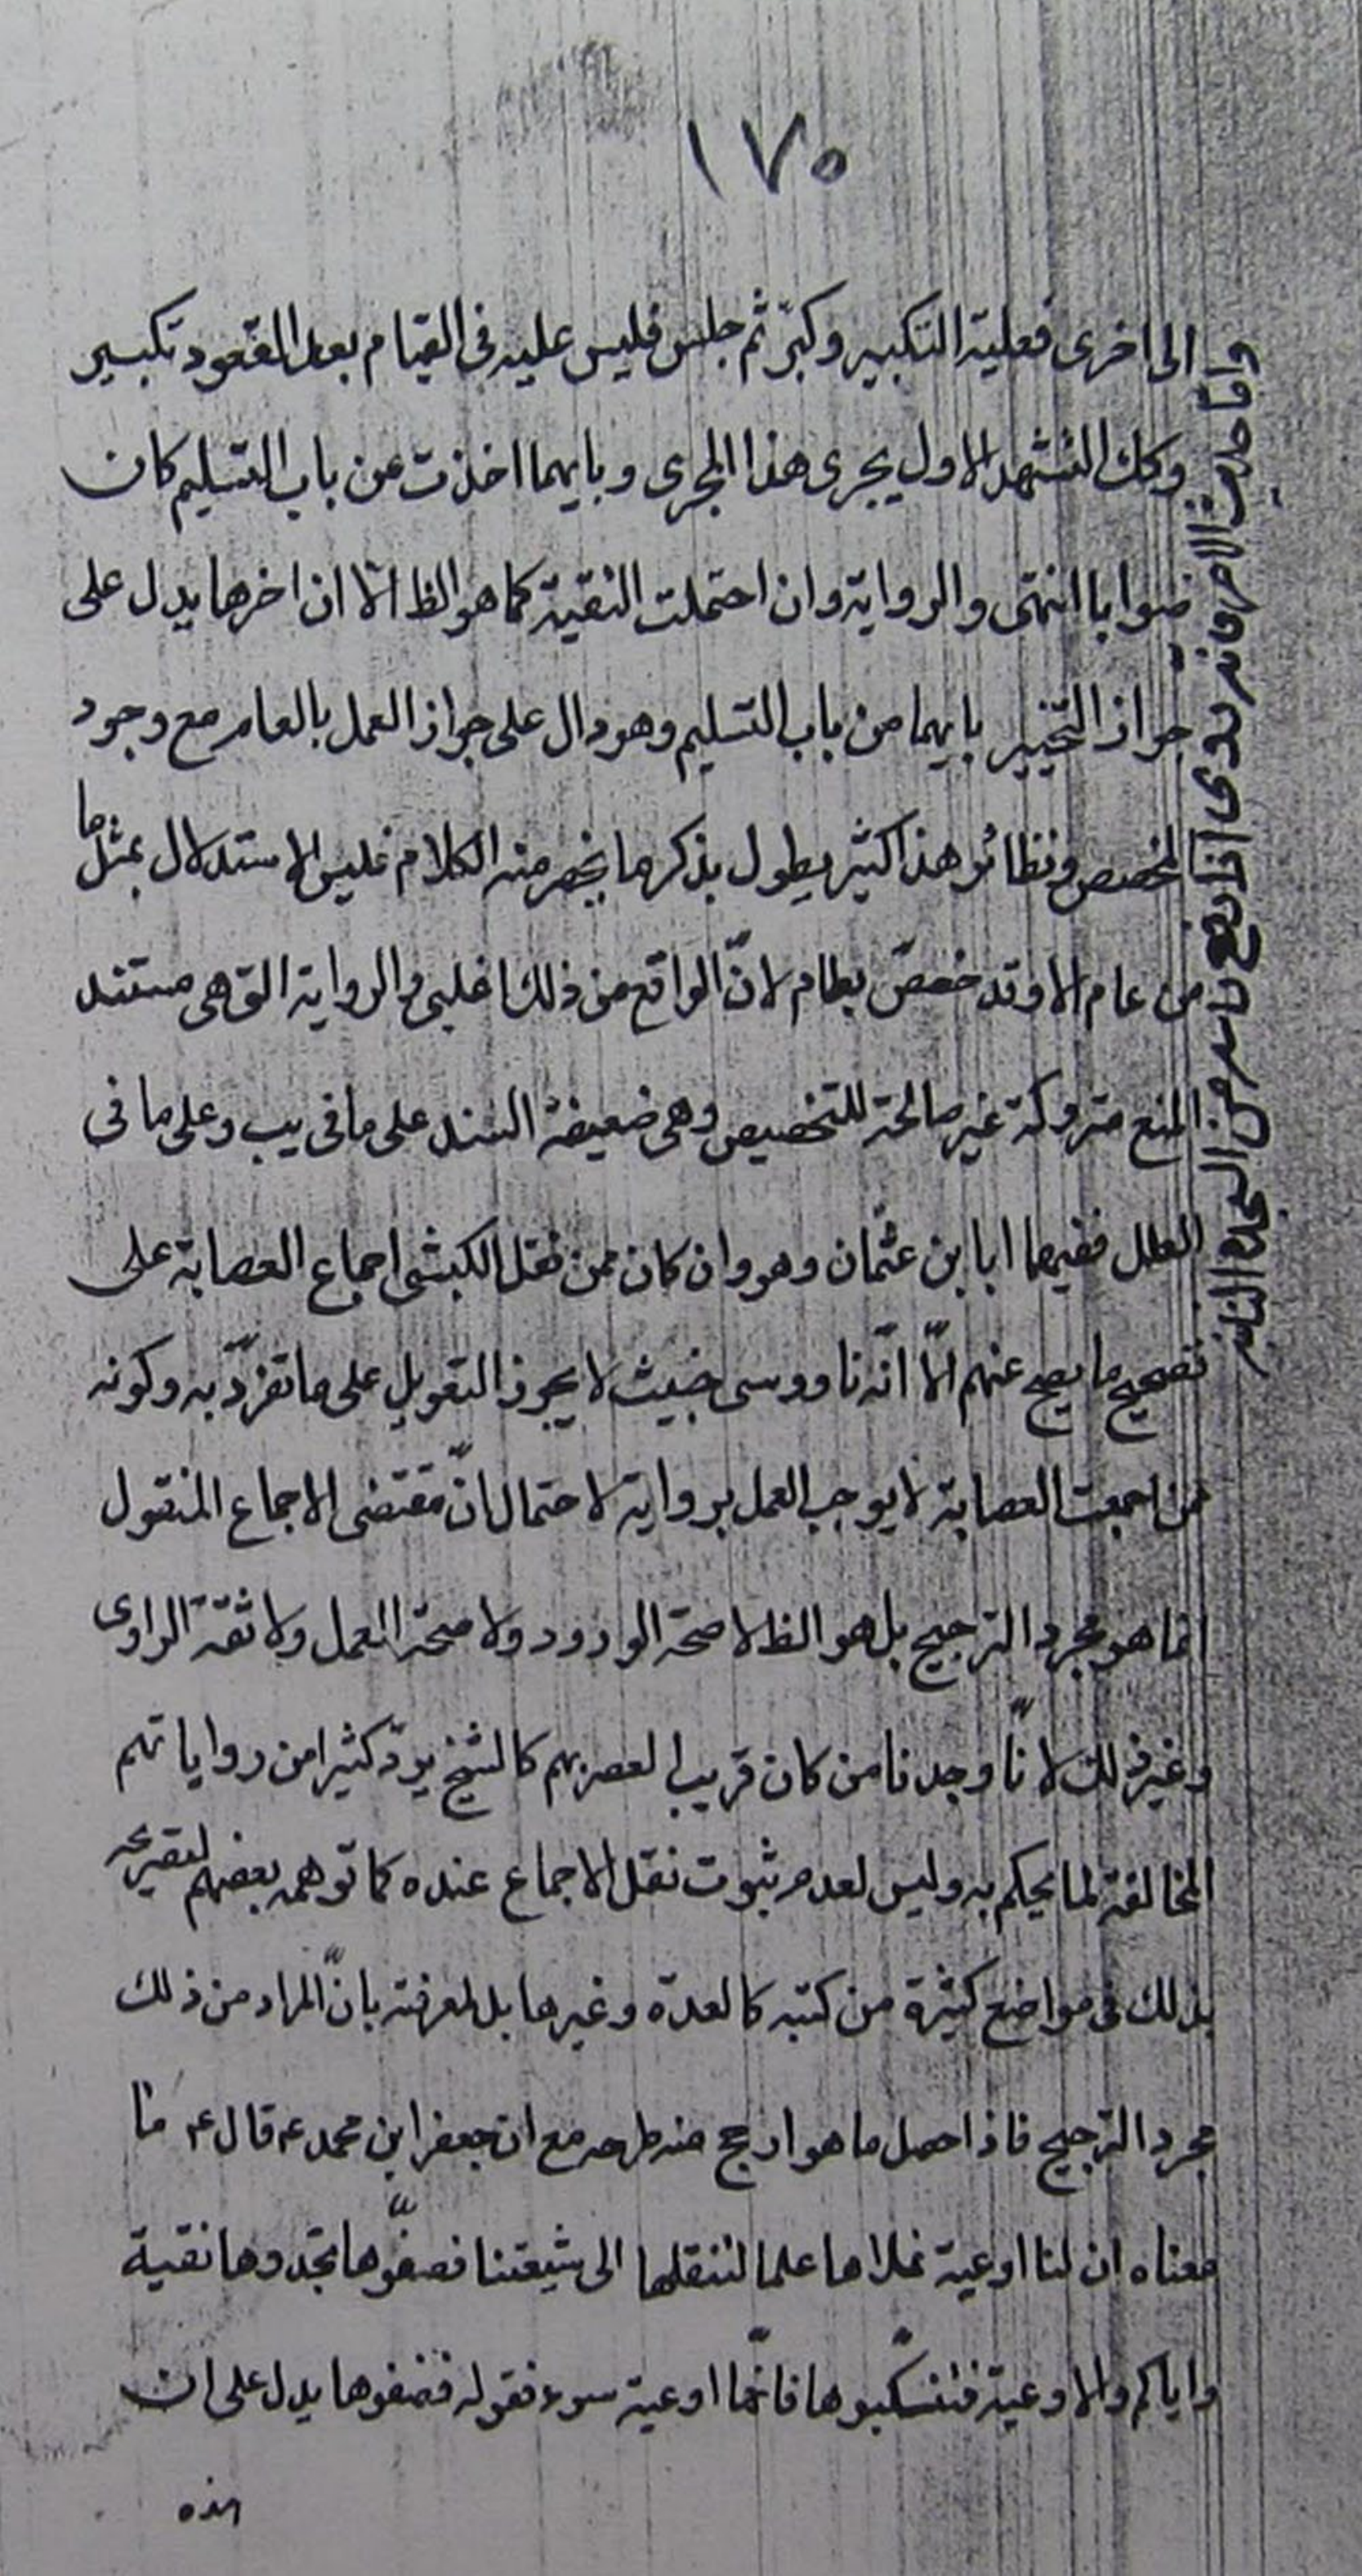 ١٧٠
الى اخرى فعليه التكبير وكبّر ثم جلس فليس عليه فى القيام بعد القعود تكبير
وكك التشهد الاول يجرى هذا المجرى وبايهما اخذت من باب التسليم كان
صوابا انتهى والرواية وان احتملت التقية كما هو الظ الا ان اخرها يدل على
جواز التخيير بايهما من باب التسليم وهو دال على جواز العمل بالعام مع وجود
المخصص ونظائر هذا كثير يطول بذكرها بخصر منه الكلام فليس الاستدلال بمثل ما
من عام الا وقد خصّ بطام لانّ الواقع من ذلك اغلبى والرواية التى هى مستند
المنع متروكة غير صالحة للتخصيص وهى ضعيفة السند على ما فى يب وعلى ما فى
العلل ففيها ابا بن عثمان وهو وان كان ممن نقل الكشى اجماع العصابة على
تصحيح ما يصح عنهم الّا انّه ناووسى خبيث لا يجوز التعويل على ما تفرّد به وكونه
ممن اجمعت العصابة لا يوجب العمل برواية لاحتمال انّ مقتضى الاجماع المنقول
انما هو مجرد الترجيح بل هو الظ لا صحة الورود ولا صحة العمل ولا ثقة الراوى
وغير ذلك لانّا وجدنا من كان قريب العصر بهم كالشيخ يردّ كثيرا من رواياتهم
المخالفة لما يحكم به وليس لعدم ثبوت نقل الاجماع عنده كما توهمه بعضهم لتصريحه
بذلك فى مواضع كثيرة من كتبه كالعدة وغيرها بل لمعرفته بانّ المراد من ذلك
مجرد الترجيح فاذا حصل ما هو ارجح منه طرحه مع ان جعفر ابن محمد ع قال ع ما
معناه ان لنا اوعية نملاها علما لننقلها الى شيعتنا فصفّوها تجدوها نقية
واياكم والاوعية فتنكّبوها فانّها اوعية سوء فقوله فصفوها يدل على ان
هذه
واما حديث الاخر فانه روى اذا رفع راسه من السجدة الثانية